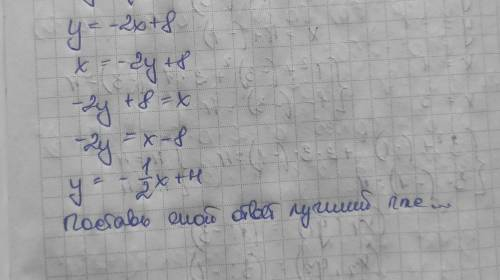 y = -2x+8
x = -2y+8
-2y +8 = x
-2y = x-8
y = -\frac{1}{2}x+4
Поставь мой ответ лучший пже...